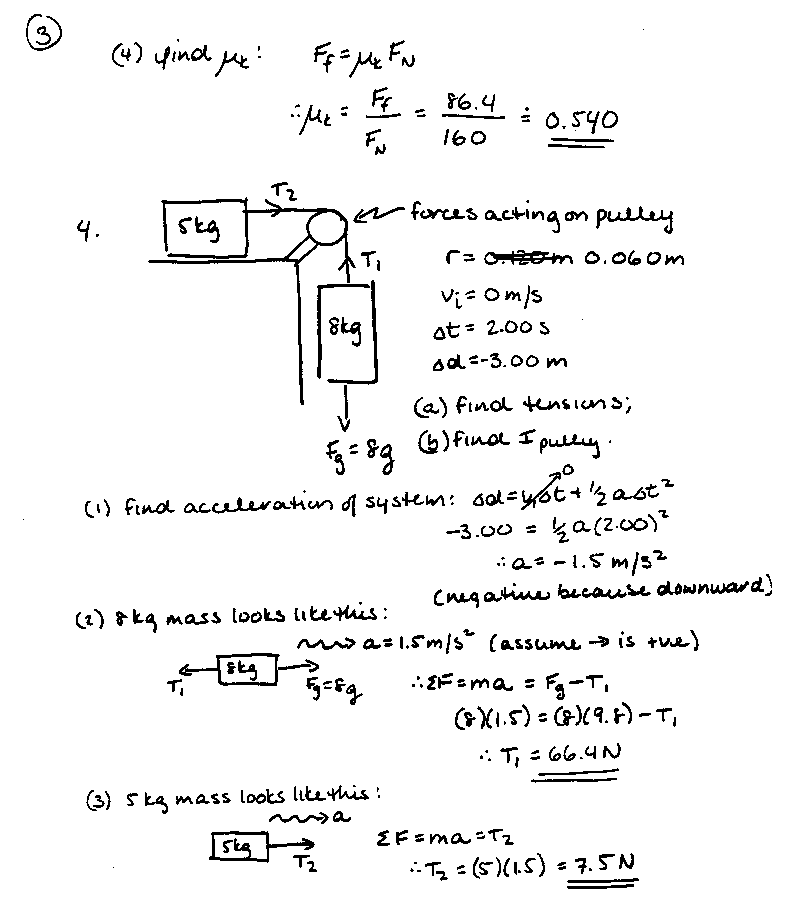 ③
(4) find μₖ: F_f = μₖ F_N
∴ μₖ = F_f / F_N = 86.4 / 160 ≐ 0.540
4. 5kg T₂ forces acting on pulley
T₁ r = 0.120m 0.060m
vᵢ = 0 m/s
8kg Δt = 2.00 s
Δd = -3.00 m
(a) find tensions;
F_g = 8g (b) find I pulley.
(1) find acceleration of system: Δd = vᵢΔt + ½ aΔt² 0
-3.00 = ½ a(2.00)²
∴ a = -1.5 m/s²
(negative because downward)
(2) 8kg mass looks like this:
a = 1.5 m/s² (assume → is +ve)
T₁ 8kg F_g = 8g ∴ ΣF = ma = F_g - T₁
(8)(1.5) = (8)(9.8) - T₁
∴ T₁ = 66.4 N
(3) 5 kg mass looks like this:
a
5kg T₂ ΣF = ma = T₂
∴ T₂ = (5)(1.5) = 7.5 N